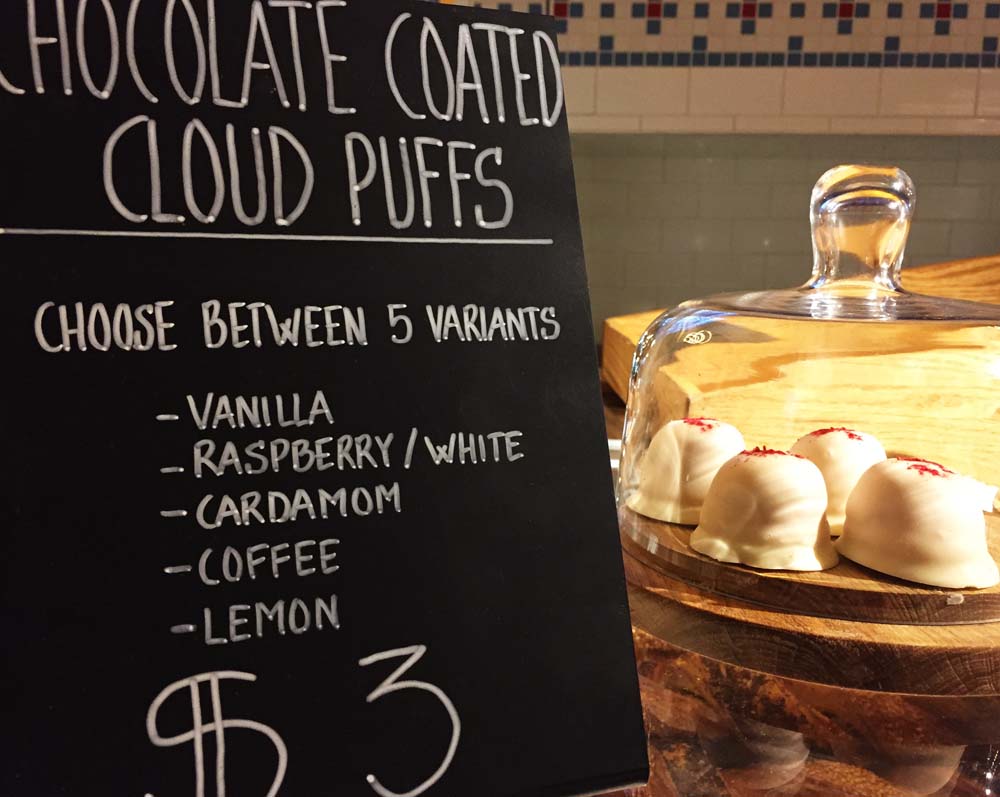 CHOCOLATE COATED
CLOUD PUFFS
CHOOSE BETWEEN 5 VARIANTS
- VANILLA
- RASPBERRY / WHITE
- CARDAMOM
- COFFEE
- LEMON
$ 3